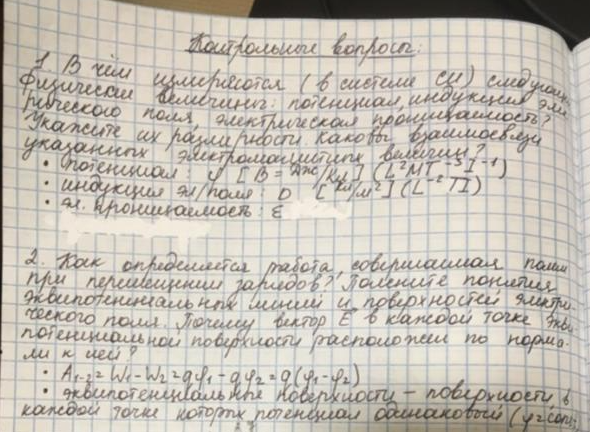 Контрольные вопросы:
1. В чём измеряются (в системе СИ) следующие
физические величины: потенциал, индукция элект
рического поля, электрическая проницаемость?
Укажите их размерности. Каковы взаимосвязи
указанных электромагнитных величин?
• потенциал: φ [В = Дж/Кл] (L²MT⁻³I⁻¹)
• индукция эл/поля: D [Кл/м²] (L⁻²TI)
• эл. проницаемость: ε
2. Как определяется работа, совершаемая полем
при перемещении зарядов? Поясните понятия
эквипотенциальных линий и поверхностей электри
ческого поля. Почему вектор E в каждой точке экви
потенциальной поверхности расположен по норма
ли к ней?
• A₁₋₂=W₁-W₂=qφ₁-qφ₂=q(φ₁-φ₂)
• эквипотенциальные поверхности – поверхности, в
каждой точке которых потенциал одинаковый (φ=const